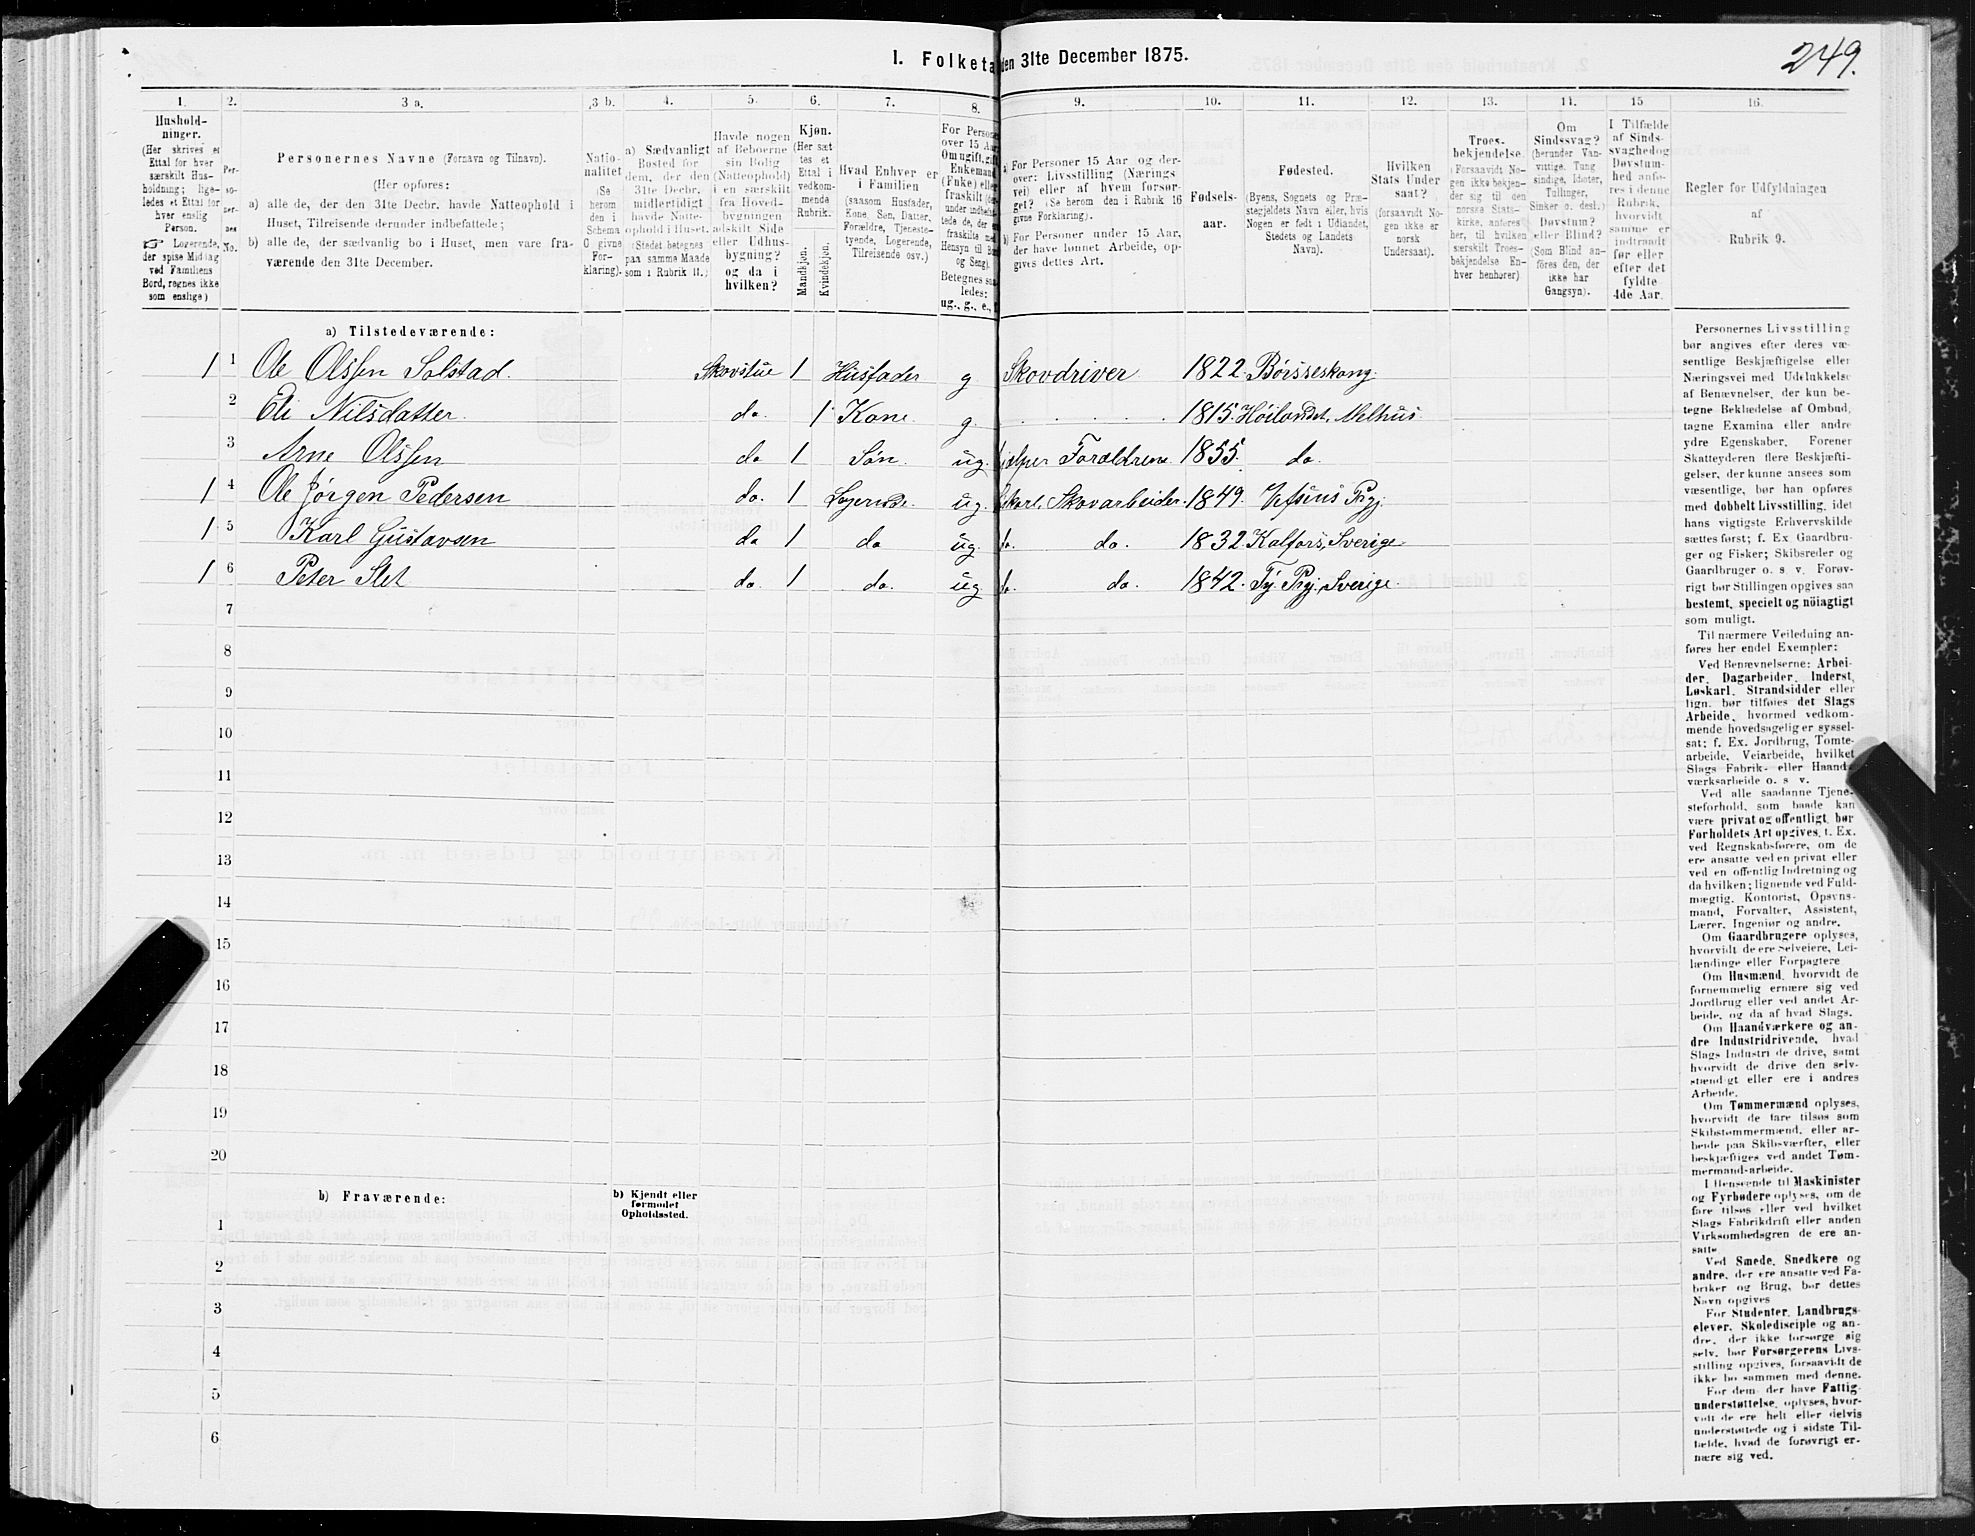 249.
I. Folketæ
den 31te December 1875.
1.
2.
3 a.
3 b.
4.
5.
6.
7.
8.
9.
10.
11.
12.
13.
14.
15
16.
Hushold-
ninger.
(Her skrives et
Ettal for hver
særskilt Hus-
holdning; lige-
ledes et Ettal for
hver enslig
Person.
☞ Logerende,
der spise Middag
ved Familiens
Bord, regnes ikke
som enslige)
Per-
so-
ner-
nes
No.
Personernes Navne (Fornavn og Tilnavn).
(Her opføres:
a) alle de, der den 31te Decbr. havde Natteophold i
Huset, Tilreisende derunder indbefattede;
b) alle de, der sædvanlig bo i Huset, men vare fra-
værende den 31te December.
Natio-
nalitet
(Se
herom
den i
Schema
C givne
For-
klaring).
a) Sædvanligt
Bosted for
dem, der den
31te Decbr.
midlertidigt
havde Natte-
ophold i Huset.
(Stedet betegnes
paa samme Maade
som i Rubrik 11.)
Havde nogen
af Beboerne
sin Bolig
(Natteophold)
i en særskilt
fra Hoved-
bygningen
adskilt Side
eller Udhus-
bygning?
og da i
hvilken?
Kjøn.
(Her sæt
tes et
Ettal i
vedkom-
mende
Rubrik.
Mandkjøn.
Kvindekjøn.
Hvad Enhver er
i Familien
(saasom Husfader,
Kone, Søn, Datter,
Forældre, Tjeneste-
tyende, Logerende,
Tilreisende osv.)
For Persone
over 15 Aar
Om ugift, gift
Enkemand
(Enke) eller
fraskilt
Betegnes saa
ledes:
ug., g., e.,
a) For Personer 15 Aar og der-
over: Livsstilling (Nærings
vei) eller af hvem forsør-
get? (Se herom den i Rubrik 16
givne Forklaring).
b) For Personer under 15 Aar,
der have lønnet Arbeide, op-
gives dettes Art.
Fødsels-
aar.
Fødested.
(Byens, Sognets og Præ-
stegjeldets Navn eller, hvis
Nogen er født i Udlandet,
Stedets og Landets
Navn).
Hvilken
Stats Under
saat?
(forsaavidt No-
gen ikke er
norsk
Undersaat).
Troes-
bekjendelse.
(Forsaavidt No-
gen ikke bekjen-
der sig til den
norske Stats-
kirke, anføres
her, til hvilken
særskilt Troes-
bekjendelse En-
hver henhører)
Om
Sindssvag?
(herunder Van-
vittige, Tung
sindige, Idioter,
Tullinger,
Sinker o. desl.)
Døvstum?
eller Blind?
(Som Blind an-
føres den, der
ikke har
Gangsyn).
I Tilfælde
af Sinds-
svaghed og
Døvstum-
hed anfø-
res i denne
Rubrik,
hvorvidt
samme er
indtraadt
før eller
efter det
fyldte
4de Aar.
Regler for Udfyldningen
af
Rubrik 9.
a) Tilstedeværende:
1 1 Ole Olssen Solstad. Skovstue 1 Husfader g Skovdriver 1822 Børsseskong.
2 Eli Nilsdatter da. 1 Kone. g. 1815. Høilandet, Melhus.
3 Arne Olssen da 1 Søn. ug. Forældrene 1855. da.
1 4 Ole Jørgen Pedersen da. 1 Logerende. ug. Skovarbeider. 1849.
1 5 Karl Gustavsen da 1 da ug. do. da. 1832. Kalfors, Sverige.
1 6 Peter Slet da. 1 da. ug. do. da. 1842. Ty. Prgj. Sverige.
7
8
9
10
11
12
13
14
15
16
17
18
19
20
b) Fraværende:
b) Kjendt eller
formodet
Opholdssted.
1
2
3
4
5
6
Personernes Livsstilling
bør angives efter deres væ-
sentlige Beskjæftigelse eller
Næringsvei med Udelukkelse
af Benævnelser, der kun be-
tegne Beklædelse af Ombud,
tagne Examina eller andre
ydre Egenskaber. Forener
Skatteyderen flere Beskjæfti-
gelser, der kunne ansees som
væsentlige, bør han opføres
med dobbelt Livsstilling, idet
hans vigtigste Erhvervskilde
sættes først; f. Ex Gaardbru-
ger og Fisker; Skibsreder og
Gaardbruger o. s. v. Forøv-
rigt bør Stillingen opgives saa
bestemt, specielt og nöiagtigt
som muligt.
Til nærmere Veiledning an-
føres her endel Exempler:
Ved Benævnelserne: Arbei-
der, Dagarbeider, Inderst,
Løskarl, Strandsidder eller
lign. bør tilføies det Slags
Arbeide, hvormed vedkom-
mende hovedsagelig er syssel-
sat; f. Ex. Jordbrug, Tomte-
arbeide, Veiarbeide, hvilket
Slags Fabrik- eller Haand-
værksarbeide o. s. v.
Ved alle saadanne Tjene-
steforhold, som baade kan
være privat og offentligt, bør
Forholdets Art opgives, t. Ex.
ved Regnskabsførere, om de
ere ansatte ved en privat eller
ved en offentlig Indretning og
da hvilken; lignende ved Fuld-
mægtig, Kontorist, Opsyns-
mand, Forvalter, Assistent,
Lærer, Ingeniør og andre.
Om Gaardbrugere oplyses,
hvorvidt de ere Selveiere, Lei-
lændinge eller Forpagtere.
Om Husmænd, hvorvidt de
fornemmelig ernære sig ved
Jordbrug eller ved andet Ar-
beide, og da af hvad Slags.
Om Haandværkere og an-
dre Industridrivende, hvad
Slags Industri de drive, samt
hvorvidt de drive den selv-
stændigt eller ere i andres
Arbeide.
Om Tømmermænd oplyses,
hvorvidt de fare tilsøs som
Skibstømmermænd, eller ar-
beide paa Skibsværfter, eller
beskjæftiges ved andet Tøm-
mermand-arbeide.
I Henseende til Maskinister
og Fyrbødere oplyses, om de
fare tilsøs eller ved hvilket
Slags Fabrikdrift eller anden
Virksomhedsgren de ere an-
satte.
Ved Smede, Snedkere og
andre, der ere ansatte ved Fa-
briker og Brug, bør dettes
Navn opgives
For Studenter, Landbrugs-
elever, Skoledisciple og an-
dre, der ikke forsørge sig
selv, bør Forsørgerens Livs-
stilling opgives, forsaavidt de
ikke bo sammen med denne.
For dem, der have Fattig-
understøttelse, oplyses, hvor-
vidt de ere helt eller delvis
understøttede og i sidste Til-
fælde, hvad de forøvrigt er-
nære sig ved.